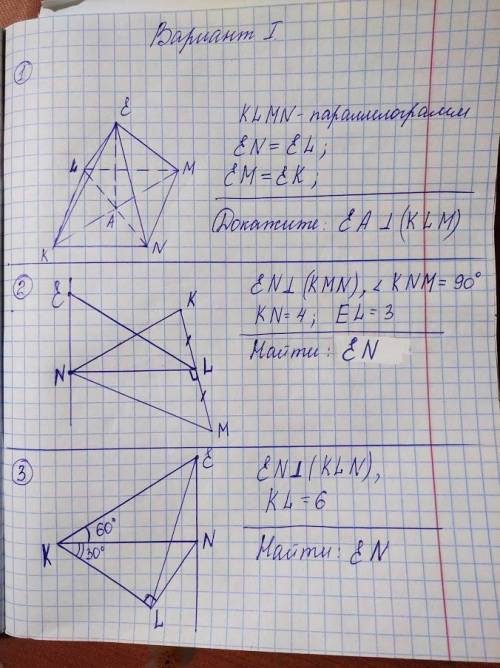 Вариант I.
①
E
L
M
A
K
N
KLMN - параллелограмм
EN = EL;
EM = EK;
Докажите: EA ⊥ (KLM)
②
E
K
N
L
M
EN ⊥ (KMN), ∠ KNM = 90°
KN = 4; EL = 3
Найти: EN
③
E
60°
K
30°
N
L
EN ⊥ (KLN),
KL = 6
Найти: EN